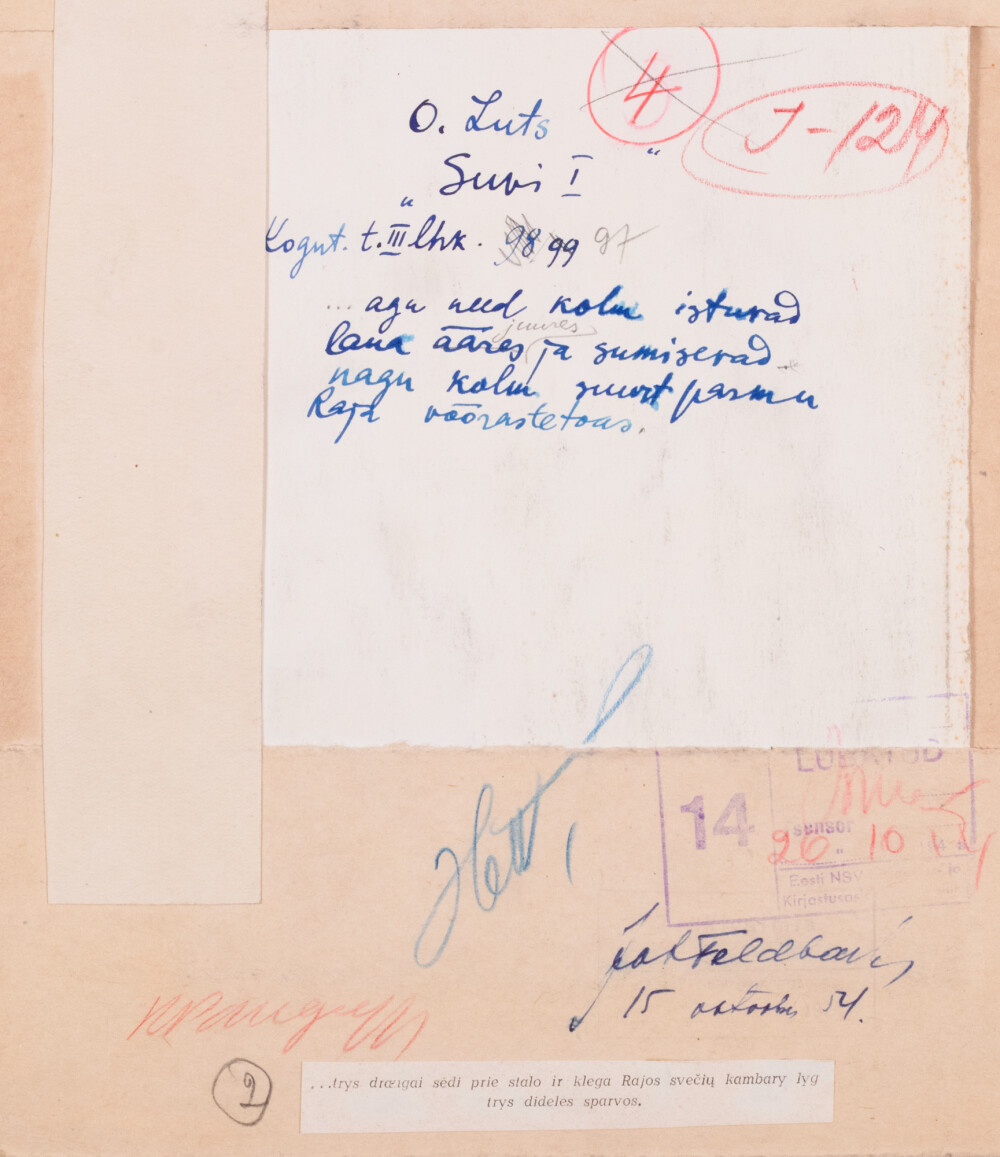 4
J-124
O. Luts
„Suvi I"
Kogut. t. III lhk. 98 99 97
... aga need kolm istuvad
laua ääres ja sumisevad
juures
nagu kolm suurt parmu
Raja võõrastetoas.
LUBATUD
14
Tsensor
26. 10
Eesti NSV
Kirjastusas
15 oktoober 54.
2
...trys draugai sėdi prie stalo ir klega Rajos svečių kambary lyg
trys dideles sparvos.